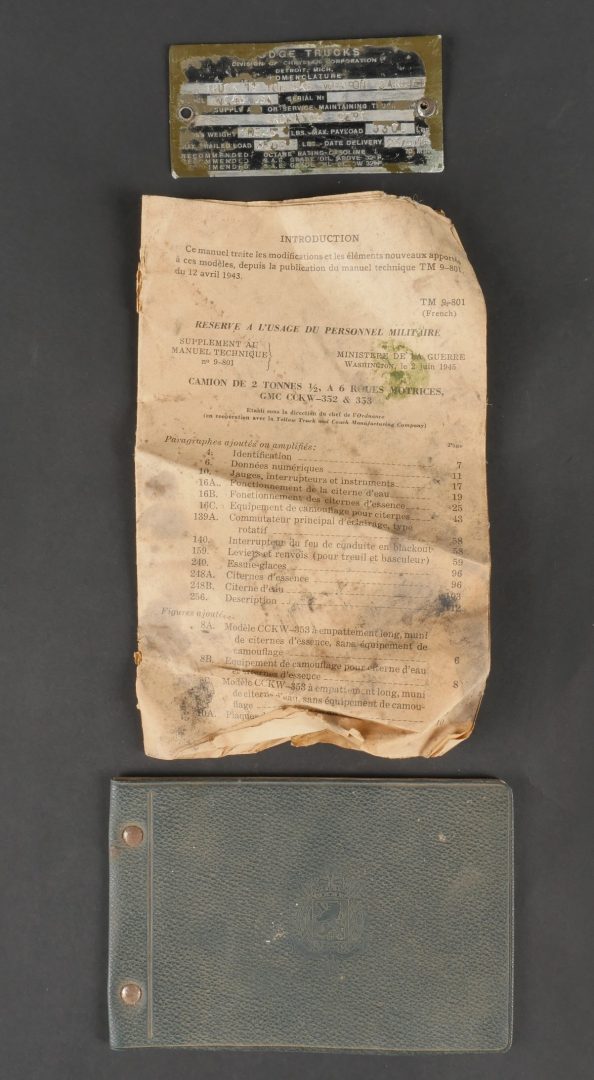 DGE TRUCKS
DIVISION OF CHRYSLER CORPORATION
DETROIT, MICH.
NOMENCLATURE
SERIAL Nº
SUPPLY A OR SERVICE MAINTAINING TRUCK
WEIGHT LBS.-MAX. PAYLOAD
MAX. TRAILED LOAD LBS.-DATE DELIVERY
RECOMMENDED OCTANE RATING-GASOLINE
S.A.E. GRADE OIL ABOVE 32°F
S.A.E. GRADE
INTRODUCTION
Ce manuel traite les modifications et les éléments nouveaux apportés
à ces modèles, depuis la publication du manuel technique TM 9-801,
du 12 avril 1943.
TM 9-801
(French)
RESERVE A L'USAGE DU PERSONNEL MILITAIRE
SUPPLEMENT AU
MANUEL TECHNIQUE
nº 9-801
MINISTERE DE LA GUERRE
WASHINGTON, le 2 juin 1945
CAMION DE 2 TONNES ½, A 6 ROUES MOTRICES,
GMC CCKW-352 & 353
Etabli sous la direction du chef de l'Ordnance
(en coopération avec la Yellow Truck and Coach Manufacturing Company)
Paragraphes ajoutés ou amplifiés: Page
4. Identification 7
6. Données numériques 11
10. Jauges, interrupteurs et instruments 17
16A. Fonctionnement de la citerne d'eau 19
16B. Fonctionnement des citernes d'essence 25
16C. Equipement de camouflage pour citernes 43
139A. Commutateur principal d'éclairage, type
rotatif 58
140. Interrupteur du feu de conduite en blackout 58
159. Leviers et renvois (pour treuil et basculeur) 59
240. Essuie-glaces 96
248A. Citernes d'essence 96
248B. Citerne d'eau 103
256. Description 112
Figures ajoutées
8A. Modèle CCKW-353 à empattement long, muni
de citernes d'essence, sans équipement de
camouflage 6
8B. Equipement de camouflage pour citerne d'eau
et citernes d'essence 8
Modèle CCKW-353 à empattement long, muni
de citerne d'eau, sans équipement de camou-
flage
10A. Plaques